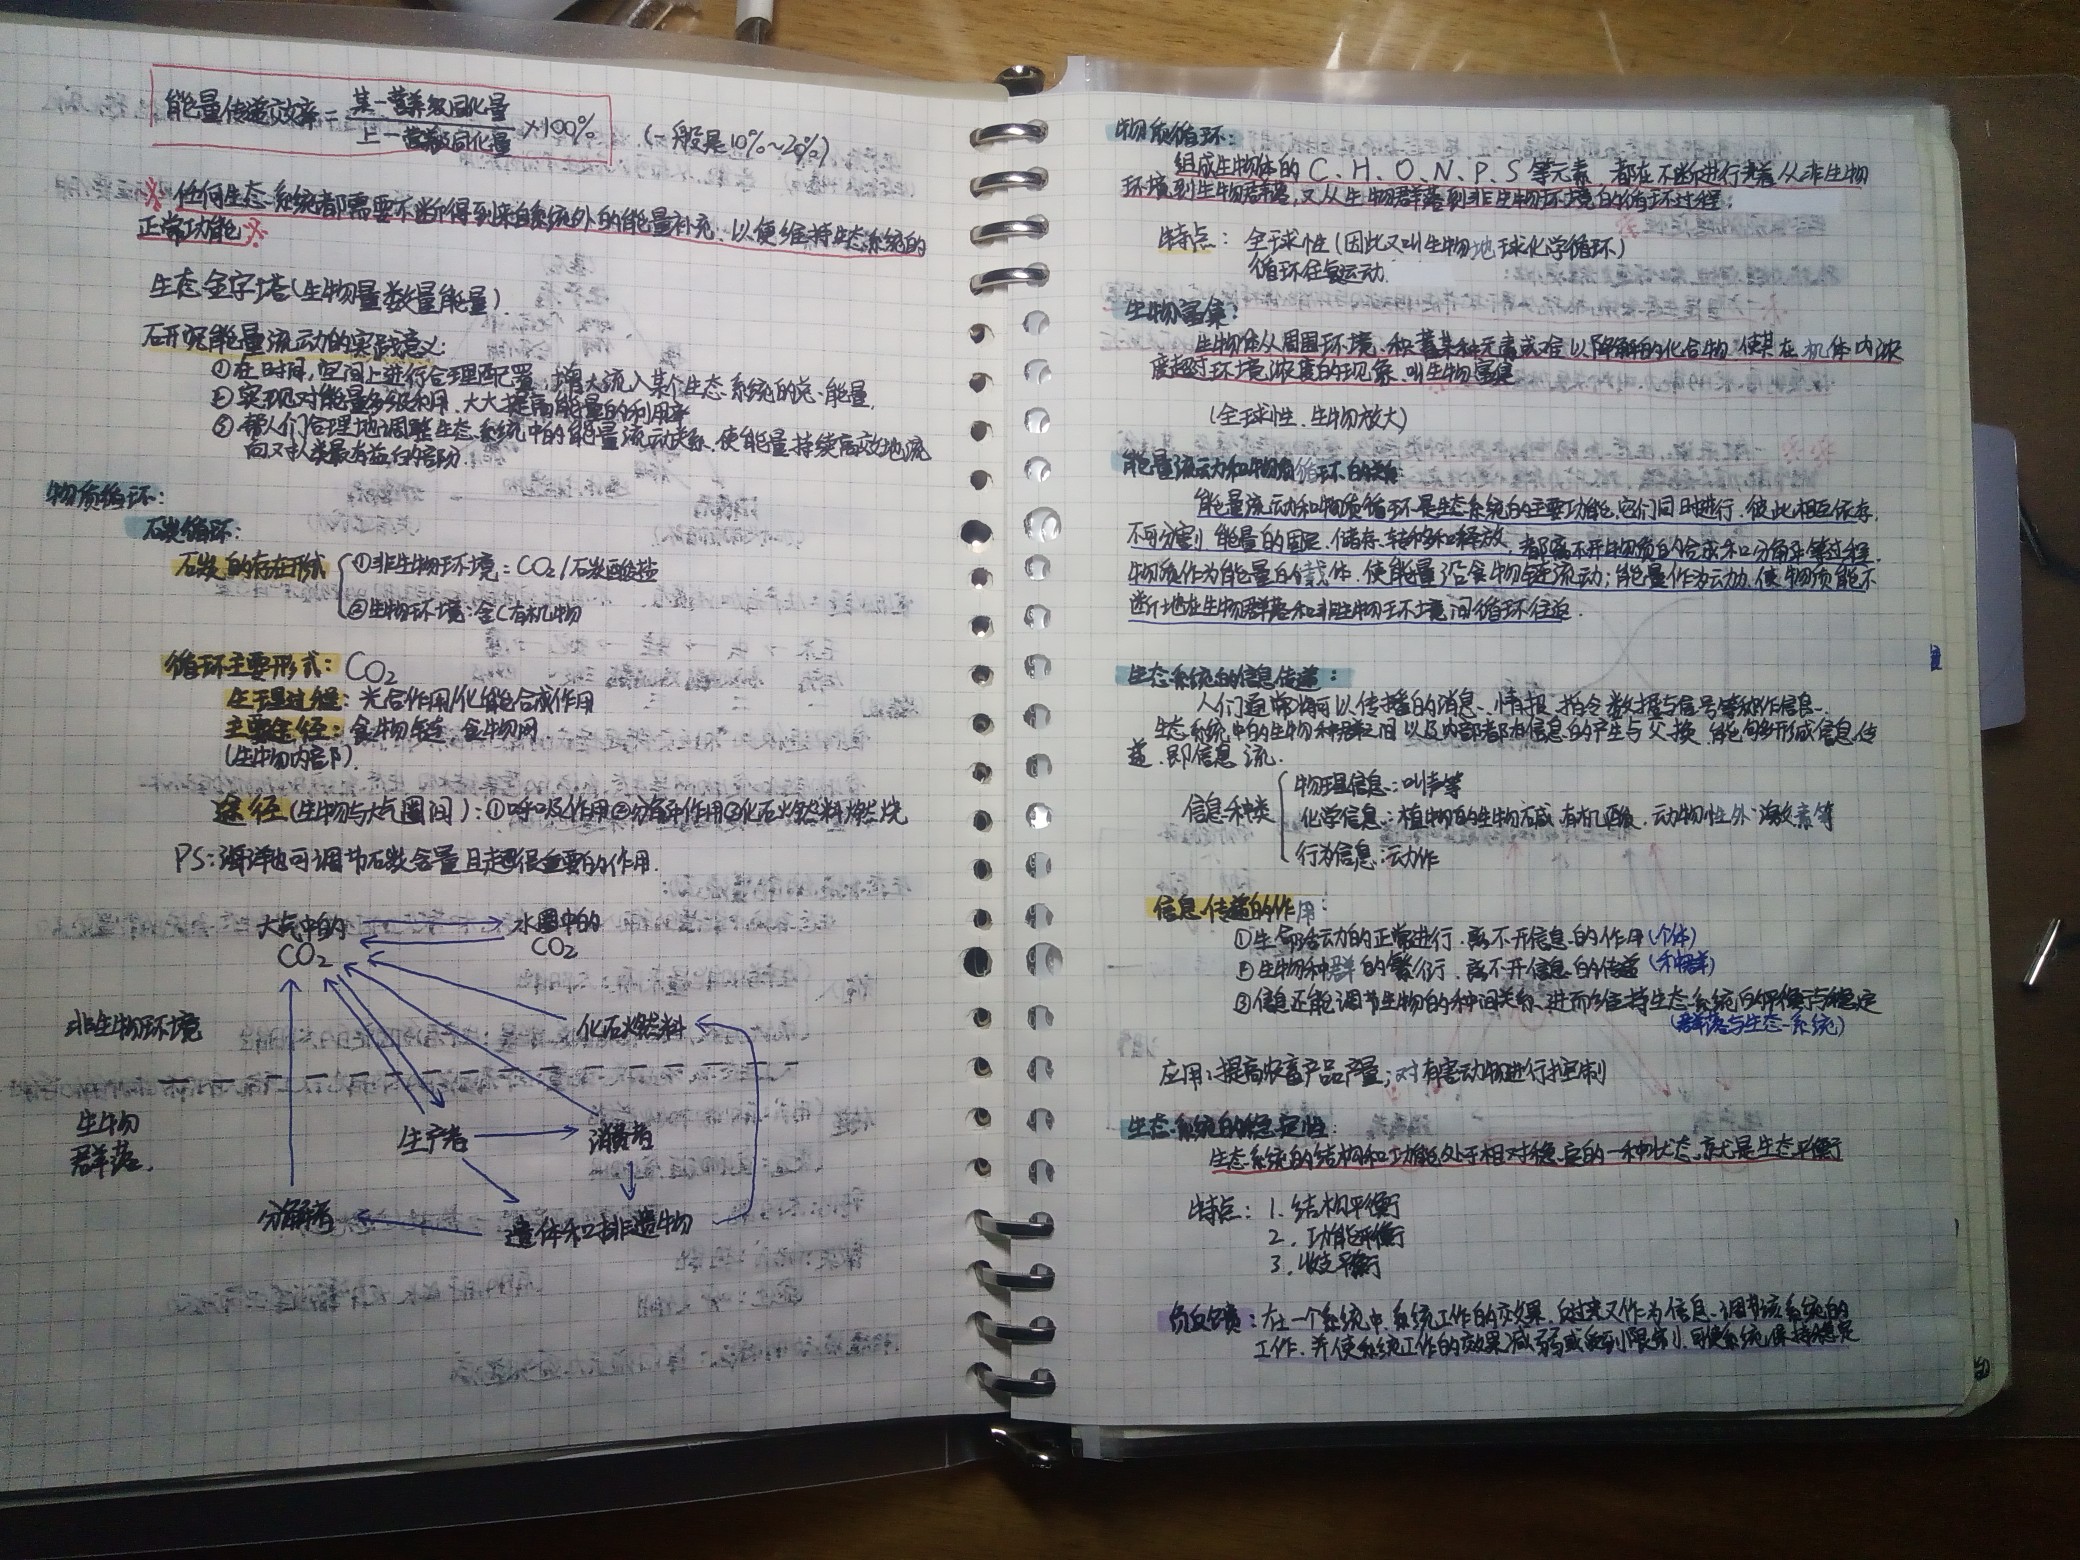 能量传递效率=某一营养级同化量/上一营养级同化量×100% (一般是10%~20%)
※任何生态系统都需要不断得到来自系统外的能量补充,以便维持生态系统的
正常功能※
生态金字塔(生物量数量能量).
研究能量流动的实践意义:
①在时间,空间上进行合理配置,增大流入某个生态系统的总能量.
②实现对能量多级利用,大大提高能量的利用率
③帮人们合理地调整生态系统中的能量流动关系,使能量持续高效地流
向对人类最有益的部分.
物质循环:
碳循环:
碳的存在形式
①非生物环境:CO2/碳酸盐
②生物环境:含C有机物
循环主要形式:CO2
生理过程:光合作用/化能合成作用
主要途径:食物链,食物网
(生物内部).
途径(生物与大气圈间):①呼吸作用②分解作用③化石燃料燃烧
PS:海洋也可调节碳含量且起很重要的作用.
大气中的
CO2
水圈中的
CO2
化石燃料
非生物环境
生物
群落.
生产者
消费者
分解者
遗体和排遗物
物质循环:
组成生物体的C、H、O、N、P、S等元素,都在不断进行着从非生物
环境到生物群落,又从生物群落到非生物环境的循环过程;
特点:全球性(因此又叫生物地球化学循环)
循环往复运动.
生物富集:
生物体从周围环境、积蓄某种元素或难以降解的化合物,使其在机体内浓
度超过环境浓度的现象,叫生物富集
(全球性、生物放大)
能量流动和物质循环的关系:
能量流动和物质循环是生态系统的主要功能,它们同时进行,彼此相互依存,
不可分割,能量的固定、储存、转移和释放,都离不开物质的合成和分解等过程.
物质作为能量的载体,使能量沿食物链流动;能量作为动力,使物质能不
断地在生物群落和非生物环境间循环往返.
生态系统的信息传递:
人们通常将可以传播的消息、情报、指令数据与信号等称作信息.
生态系统中的生物种群之间以及内部都有信息的产生与交换,能够形成信息传
递,即信息流.
信息种类
物理信息:叫声等
化学信息:植物的生物碱,有机酸,动物性外激素等
行为信息:动作
信息传递的作用:
①生命活动的正常进行,离不开信息的作用(个体)
②生物种群的繁衍,离不开信息的传递(种群)
③信息还能调节生物的种间关系,进而维持生态系统的平衡与稳定
(群落与生态系统)
应用:提高农畜产品产量;对有害动物进行控制
生态系统的稳定性:
生态系统的结构和功能处于相对稳定的一种状态,就是生态平衡
特点:1.结构平衡
2.功能平衡
3.收支平衡
负反馈:在一个系统中,系统工作的效果,反过来又作为信息、调节该系统的
工作,并使系统工作的效果减弱或受到限制,可使系统保持稳定